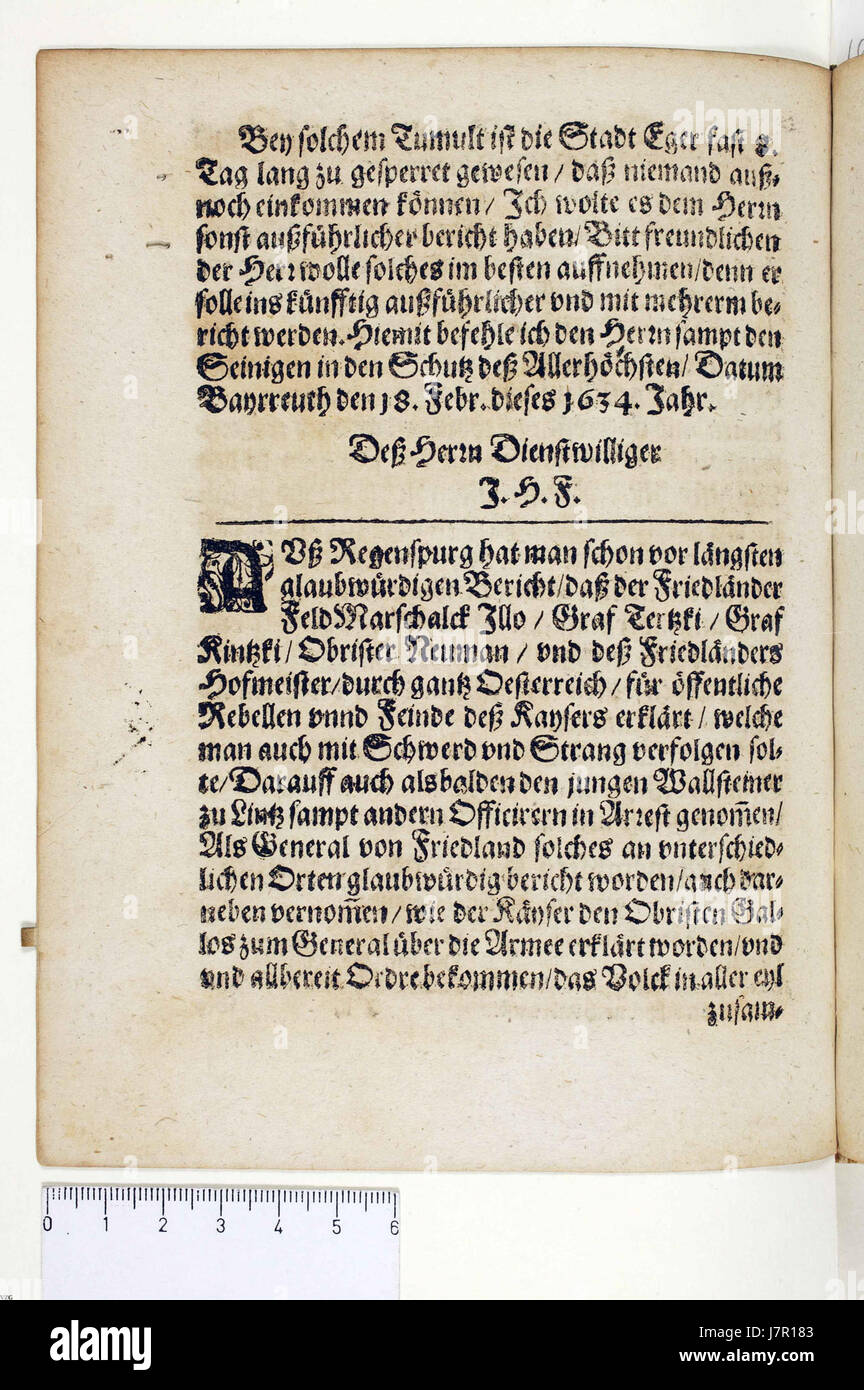 Bey solchem Tumult ist die Stadt Eger fast
Tag lang zu gesperret gewesen / daß niemand auß-
noch einkommen können / Ich wolte es dem Herrn
sonst außführlicher bericht haben / Bitt freundlichen
der Herr wolle solches im besten auffnehmen / denn er
solle ins künfftig außführlicher vnd mit mehrerm be-
richt werden. Hiemit befehle ich den Herrn sampt den
Seinigen in den Schutz deß Allerhöchsten / Datum
Bayrreuth den 18. Febr. dieses 1634. Jahr.
Deß Herrn Dienstwilliger
J. H. F.
AVß Regenspurg hat man schon vor längsten
glaubwürdigen Bericht / daß der Friedländer
FeldMarschalck Illo / Graf Tertzki / Graf
Kintzki / Obrister Neuman / vnd deß Friedländers
Hofmeister / durch gantz Oesterreich / für öffentliche
Rebellen vnnd Feinde deß Kaysers erklärt / welche
man auch mit Schwerd vnd Strang verfolgen sol-
te / Darauff auch alsbalden den jungen Wallsteiner
zu Lintz sampt andern Officirern in Arrest genom̃en /
Als General von Friedland solches an vnterschied-
lichen Orten glaubwürdig bericht worden / auch dar-
neben vernom̃en / wie der Käyser den Obristen Gal-
los zum General über die Armee erklärt worden / vnd
vnd allbereit Ordre bekommen / das Volck in aller eyl
zusam-
0 1 2 3 4 5 6
alamy
Image ID: J7R183
www.alamy.com